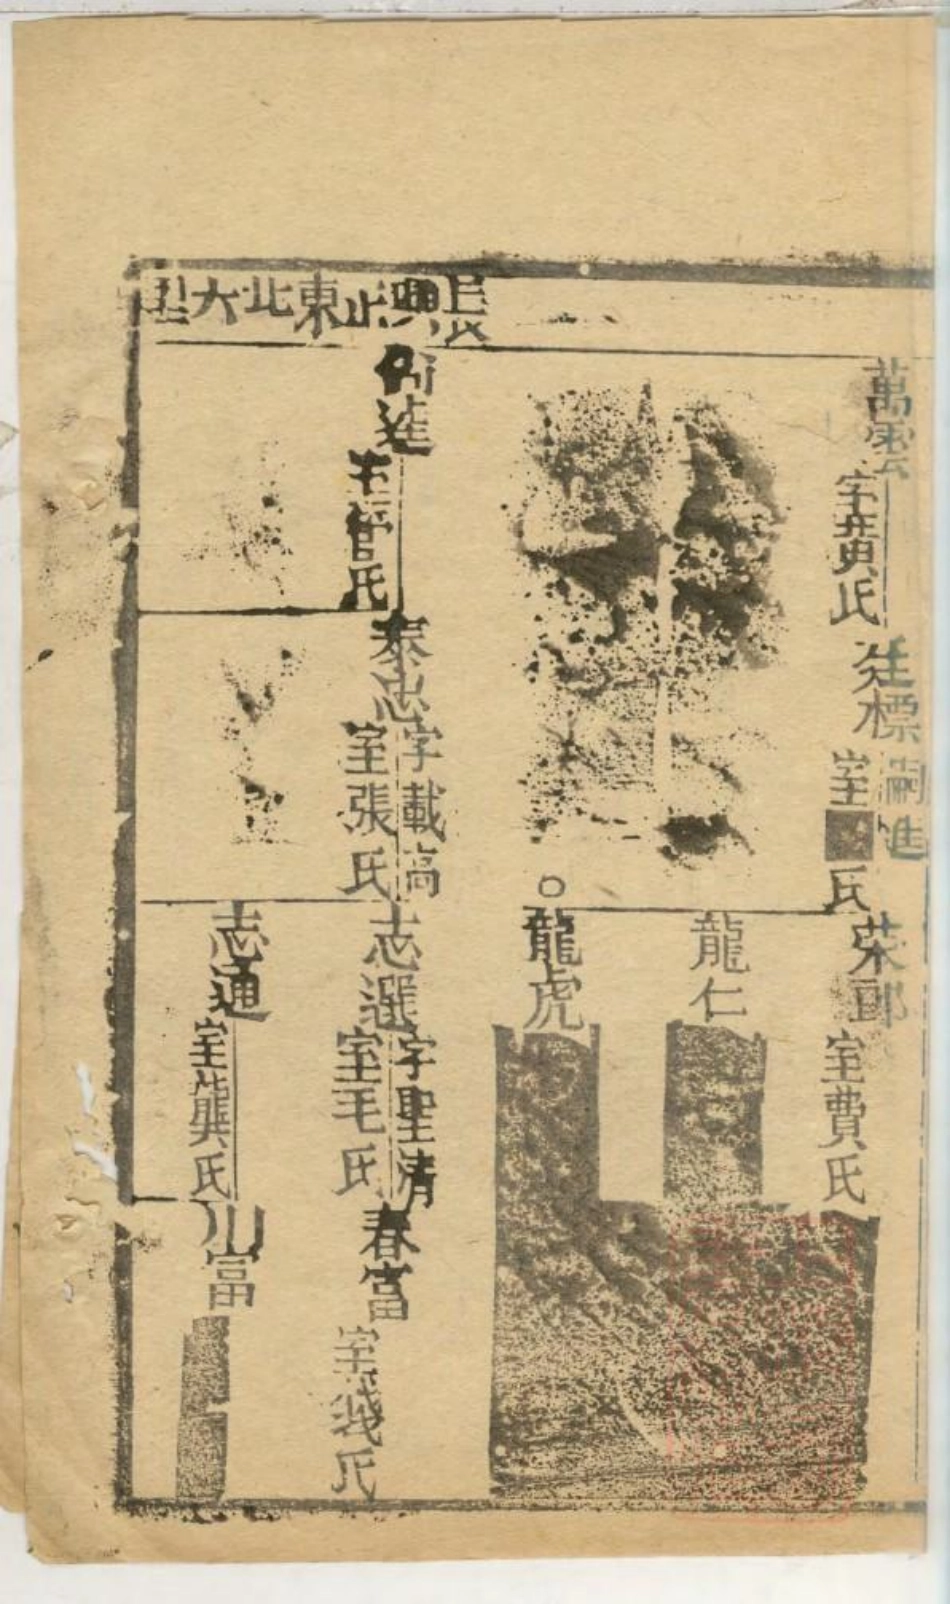 萬雲
室黄氏
廷標
嗣進
室
氏
荣郎
室費氏
龍仁
○龍虎
長興
東北大里
進
管氏
泰忠
字載
室張氏
志選
字聖清
室毛氏
春富
室錢氏
志通
室龔氏
川富